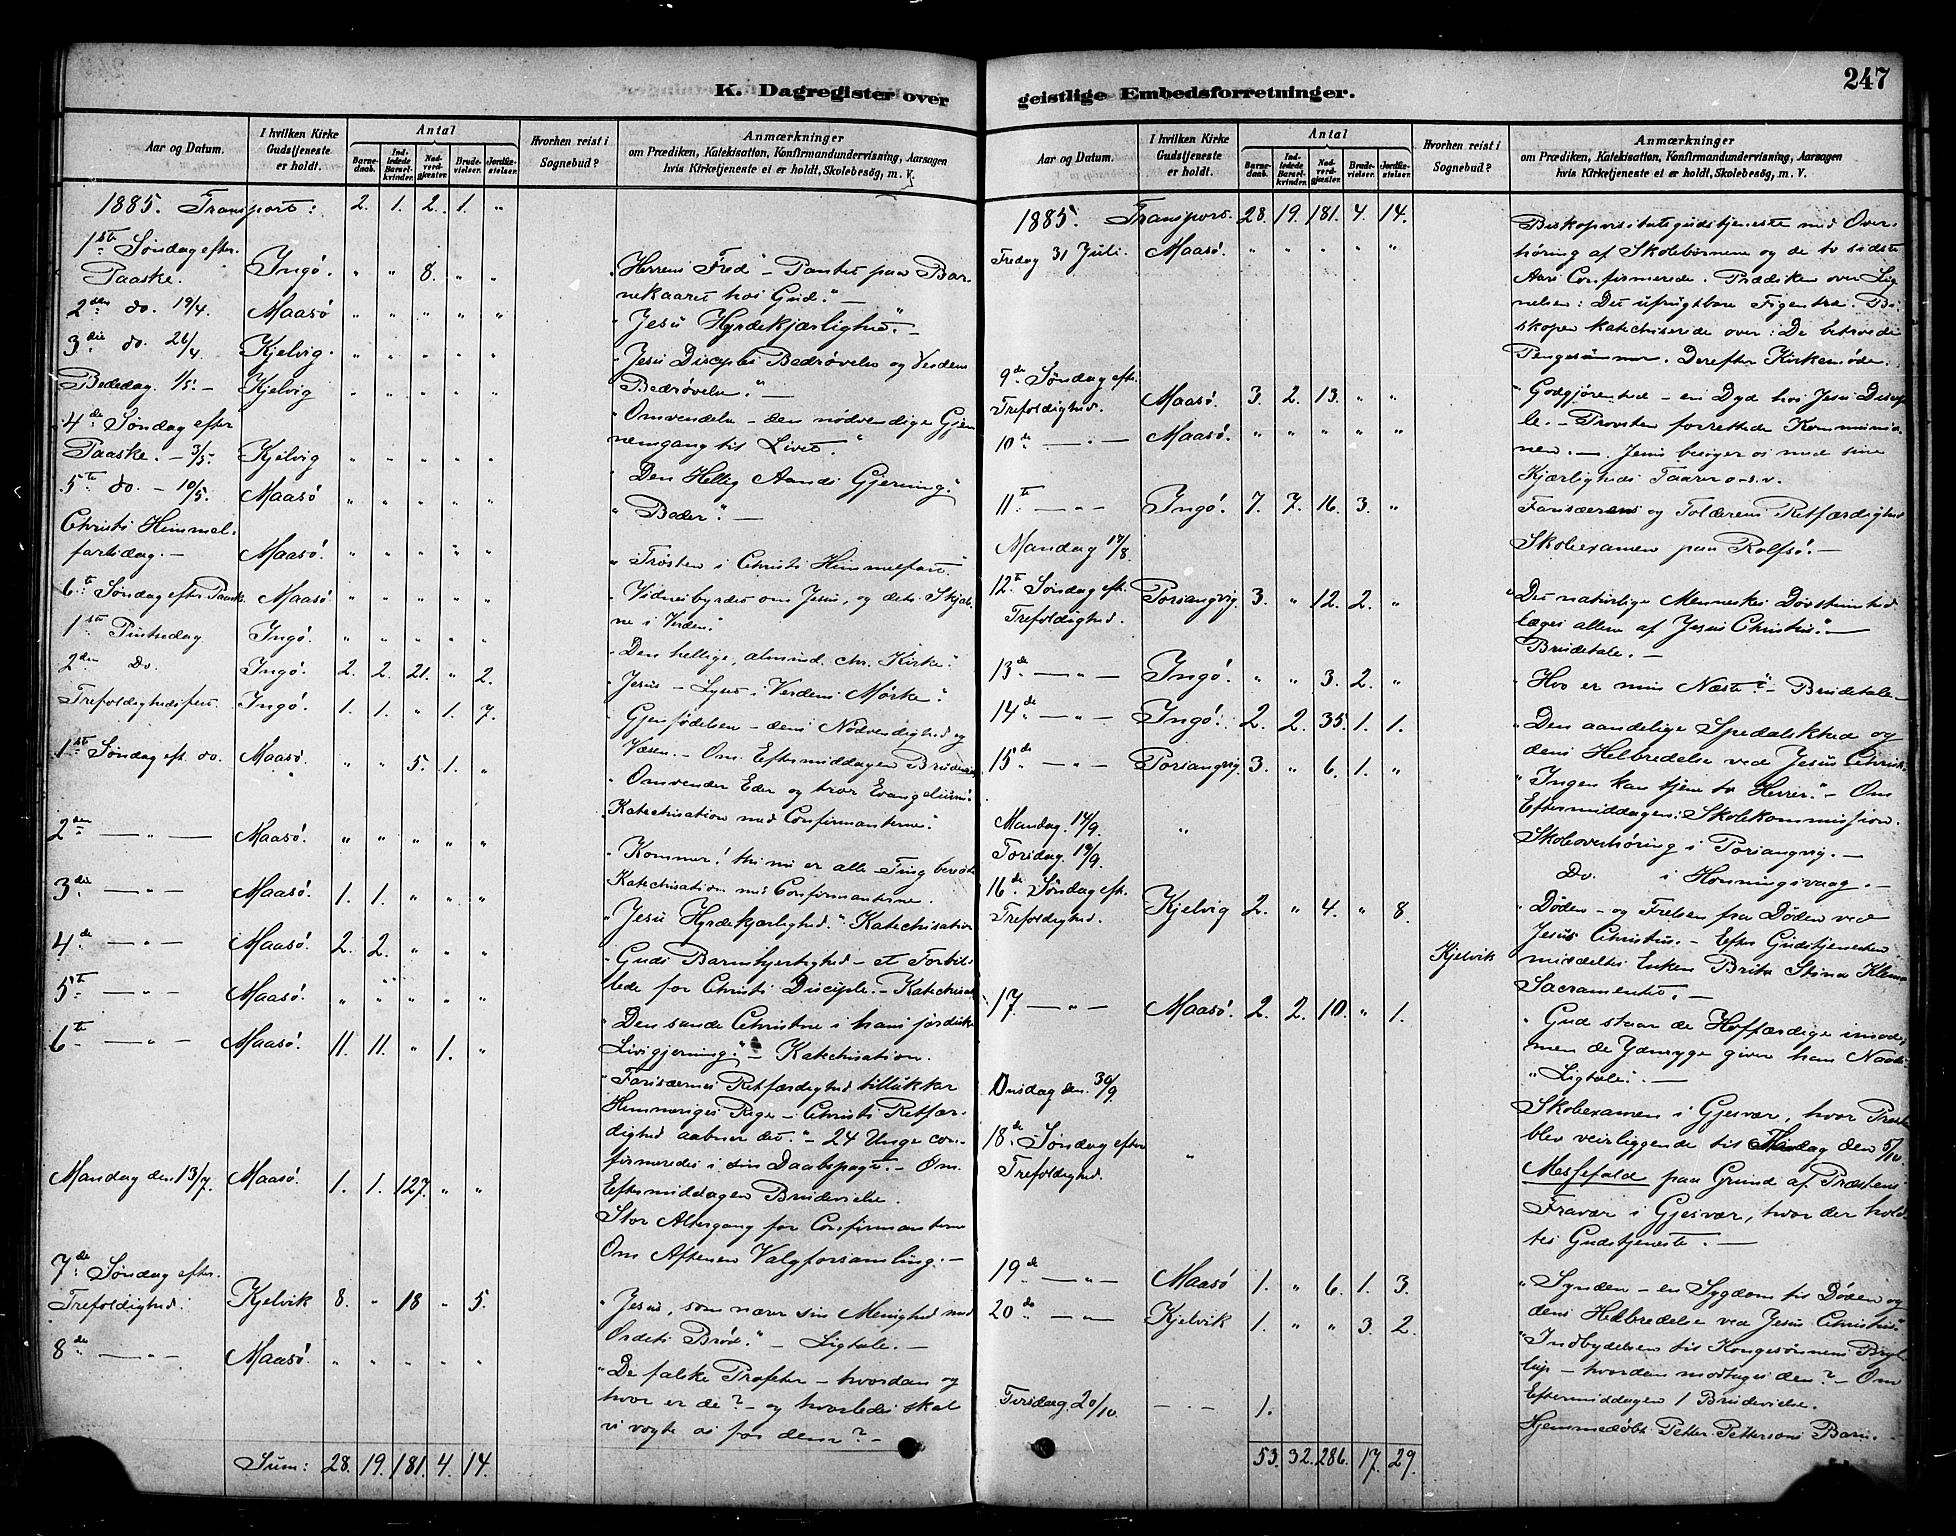 247
K. Dagregister over
Aar og Datum.
I hvilken Kirke Gudstjeneste er holdt.
Antal
Barne-daab.
Ind-ledede Barsel-kvinder.
Nad-verd-gjæster.
Brude-vielser.
Jordfæ-stelser.
Hvorhen reist i Sognebud?
Anmærkninger
om Prædiken, Katekisation, Konfirmandundervisning, Aarsagen
hvis Kirketjeneste ei er holdt, Skolebesøg, m. V.
1885. Transport: 2. 1. 2. 1. "
1ste Søndag efter
Paaske. Ingø. " " 8. " " "Herrens Fred" – Pantet paa Bar-
nekaaret hos Gud." –
2den do. 19/4. Maasø " " " " " "Jesu Hyrdekjærlighed". –
3die do. 26/4 Kjelvig. " " " " " "Jesu Disciples Bedrøvelse og Verdens
Bededag. 1/5. – Kjelvig " " " " " Bedrøvelse." –
4de Søndag efter "Omvendelse – den nødvendige Gjen-
Paaske. – 3/5. Kjelvig " " " " " nemgang til Livet."
5te do. – 10/5. Maasø " " " " " "Den Hellig Aands Gjerning."
Christi Himmel- "Beder." –
fartsdag. – Maasø. " " " " " "Trøsten i Christi Himmelfart."
6te Søndag efter Paaske. Maasø. " " " " " "Vidnesbyrdet om Jesus, og dets Skjæb-
ne i Verden."
1ste Pintsedag Ingø. " " " " " "Den hellige, almind. chr. Kirke."
2den Do. Ingø. 2. 2. 21. " 2. "Jesus – Lyset i Verdens Mørke."
Trefoldighedsfest. Ingø. 1. 1. " 1. 7. "Gjenfødelsen – dens Nødvendighed og
Væsen. – Om Eftermiddagen
1ste Søndag eft. do. Maasø. " " 5. 1. " "Omvender Eder og tror Evangelium."
Katechisation med Confirmanterne."
2den — " — Maasø. " " " " " "Kommer! thi nu er alle Ting beredte
3die — " — Maasø. 1. 1. " " " Katechisation med Confirmanterne.
"Jesu Hyrdekjærlighed." Katechisation
4de — " — Maasø. 2. 2. " " " "Guds Barmhjertighed – et Forbil-
5te — " — Maasø. " " " " " lede for Christi Disciple. – Katechisat.
6te — " — Maasø. 11. 11. " 1. " "Den sande Christne i hans jordiske
Livsgjerning." – Katechisation.
"Farisæernes Retfærdighed tillukkar
Himmeriges Rige – Christi Retfær-
dighed aabner det." – 24 Unge con-
firmeredes i sin Daabspagt. – Om
Mandag den 13/7. Maasø. 1. 1. 127. " " Eftermiddagen Brudevielse.
Stor Altergang for Confirmanterne
Om Aftenen Valgforsamling. –
7de Søndag efter
Trefoldighed. Kjelvik 8. " 18 " 5. "Jesus, som nærer sin Menighed med
Ordets Brød." – Ligtale. –
8de — " — Maasø. " " " " " "De falske Profeter – hvordan og
hvor er de? – og hvorledes skal
vi vogte os for dem? –
Sum: 28. 19. 181. 4. 14.
geistlige Embedsforretninger.
Aar og Datum.
I hvilken Kirke Gudstjeneste er holdt.
Antal
Barne-daab.
Ind-ledede Barsel-kvinder.
Nad-verd-gjæster.
Brude-vielser.
Jordfæ-stelser.
Hvorhen reist i Sognebud?
Anmærkninger
om Prædiken, Katekisation, Konfirmandundervisning, Aarsagen
hvis Kirketjeneste ei er holdt, Skolebesøg, m. V.
1885. Transport. 28. 19. 181. 4. 14.
Fredag 31 Juli. Maasø. " " " " " Biskopsvisitatsgudstjeneste med Over-
høring af Skolebørnene og de to sidste
Aars Confirmerede. Prædiken over Lig-
nelsen: Det ufrugtbare Figentræ. Bi-
skopen katechiserede over: De betroede
Pengesummer. Derefter Kirkemøde.
9de Søndag eft.
Trefoldighed. Maasø. 3. 2. 13. " " "Godgjørenhed – en Dyd hos Jesu Discip-
le. – Provsten forrettede Kommunio-
10de — " — Maasø. " " " " " nen. – Jesus besøger os med sine
Kjærligheds Taarer o.s.v.
11te — " — Ingø. 7. 7. 16. 3. " Farisæerens og Tolderens Retfærdighed
Mandag 17/8. Skoleexamen paa Rolfsø. –
12te Søndag eft.
Trefoldighed. Porsangvig. 3. " 12. 2. " "Det naturlige Menneskes Døvstumhed
læges allene af Jesus Christus." –
Brudetale. –
13de — " — Ingø. " " 3. 2. " "Hvo er min Næste"? – Brudetale
14de — " — Ingø. 2. 2. 35. 1. 1. "Den aandelige Spedalskhed og
dens Helbredelse ved Jesus Christ.
15de — " — Porsangvig. 3. " 6. 1. " "Ingen kan tjene to Herrer." – Om
Eftermiddagen: Skolekommission.
Mandag. 14/9. " Skoleoverhøring i Porsangvig. –
Torsdag. 19/9. Do. i Honningsvaag. –
16de Søndag eft.
Trefoldighed. Kjelvig 2. " 4. " 8. "Døden – og Frelsen fra Døden ved
Jesus Christus. – Efter Gudstjenesten
Kjelvik meddeltes Enken Brita Stina
Sacramentet. –
17. — " — Maasø. 2. 2. 10. " 1. "Gud staar de Hoffærdige imod,
men de Ydmyge giver han Naade."
"Ligtale". –
Onsdag den 30/9 Skoleexamen i Gjesvær, hvor Præst.
blev veirliggende til Mandag den 5/10.
18de Søndag efter
Trefoldighed. " Messefald paa Grund af Præstens
Fravær i Gjesvær, hvor der hold-
tes Gudstjeneste. –
19de — " — Maasø 1. " 6. 1. 3. "Synden – en Sygdom til Døden og
dens Helbredelse ved Jesus Christus"
20de — " — Kjelvik 1. " " 3. 2. "Indbydelsen til Kongesønnens Bryl-
lup – hvordan modtages den? – Om
Eftermiddagen 1 Brudevielse.
Tirsdag 20/10. — " — 1. Hjemmedøbt Petter Pettersons Barn.
53. 32. 286. 17. 29.